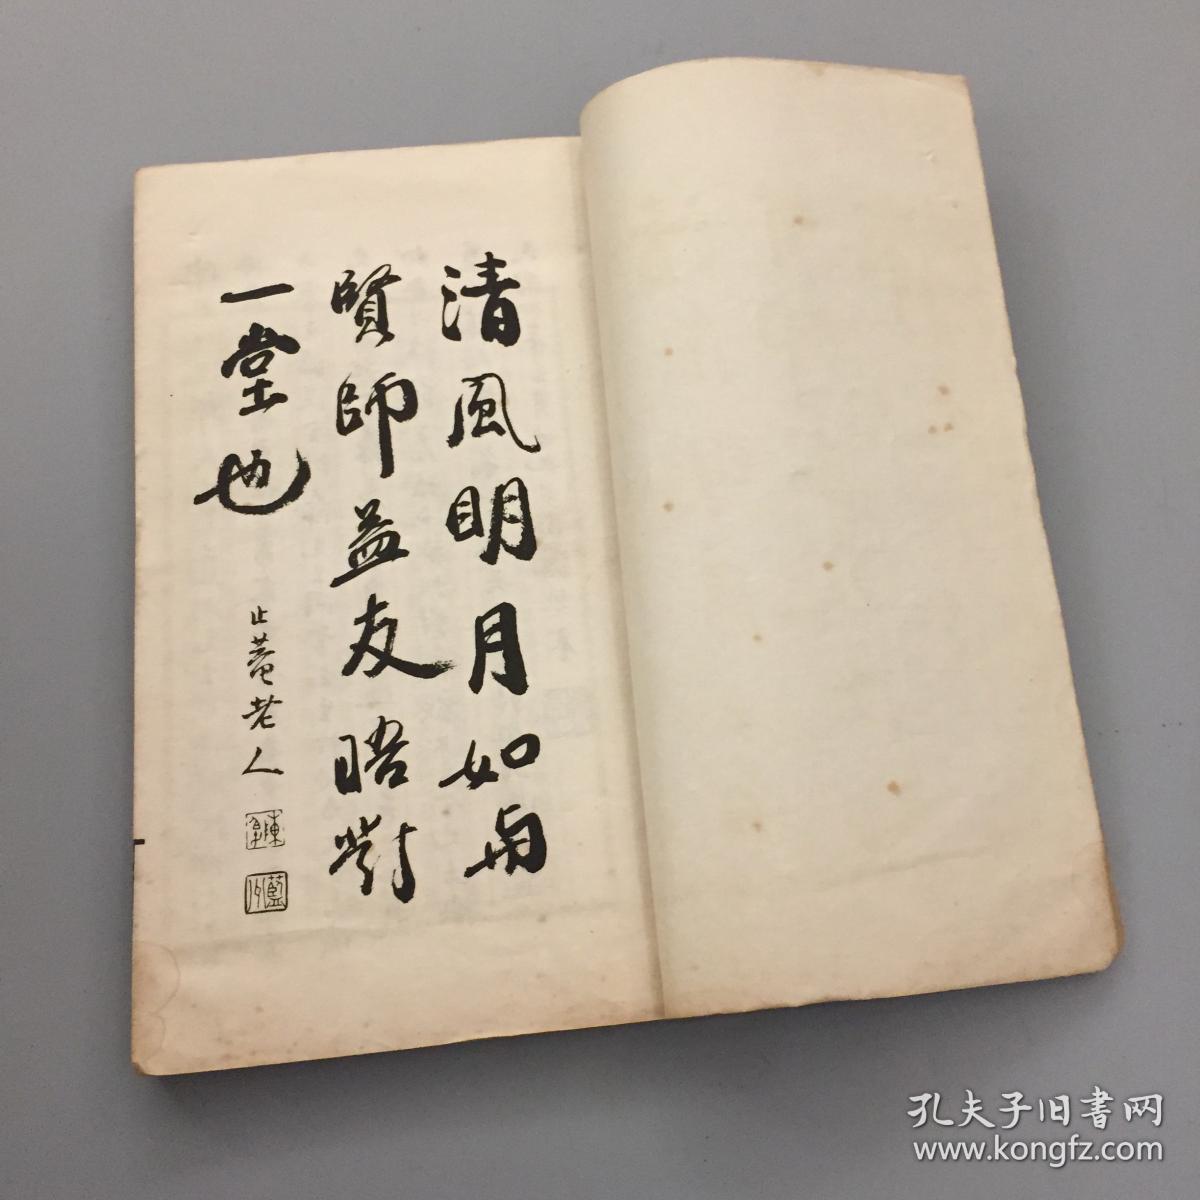 清風明月如與
賢師益友晤對
一堂也
止菴老人
孔夫子旧書网
www.kongfz.com